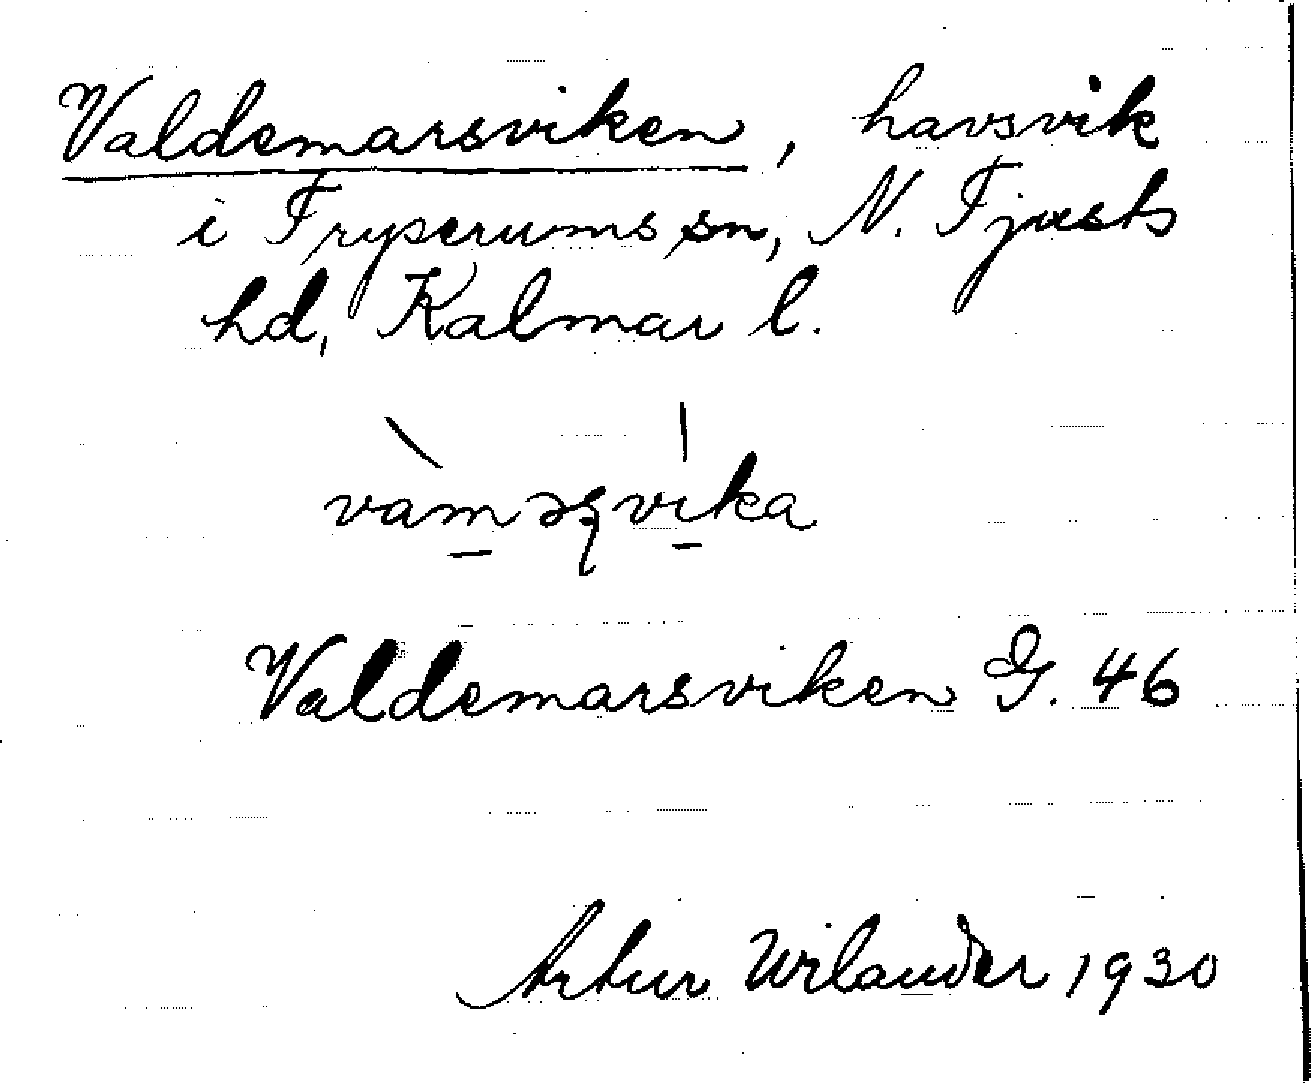 Valdemarsviken, havsvik
i Tryserums sn, N. Tjusts
hd, Kalmar l.
vàmǝʂvika
Valdemarsviken G. 46
Artur Wilander 1930